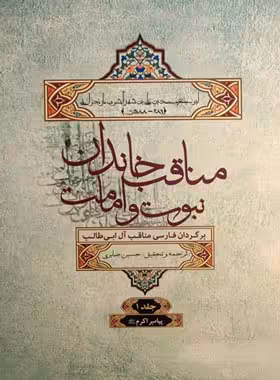 ابوجعفر محمد بن علی بن شهرآشوب مازندرانی
(۴۸۹-۵۸۸ق)
مناقب خاندان
نبوت و امامت
برگردان فارسی مناقب آل ابی طالب
ترجمه و تحقیق: حسین صابری
جلد ۱
پیامبر اکرم ﷺ